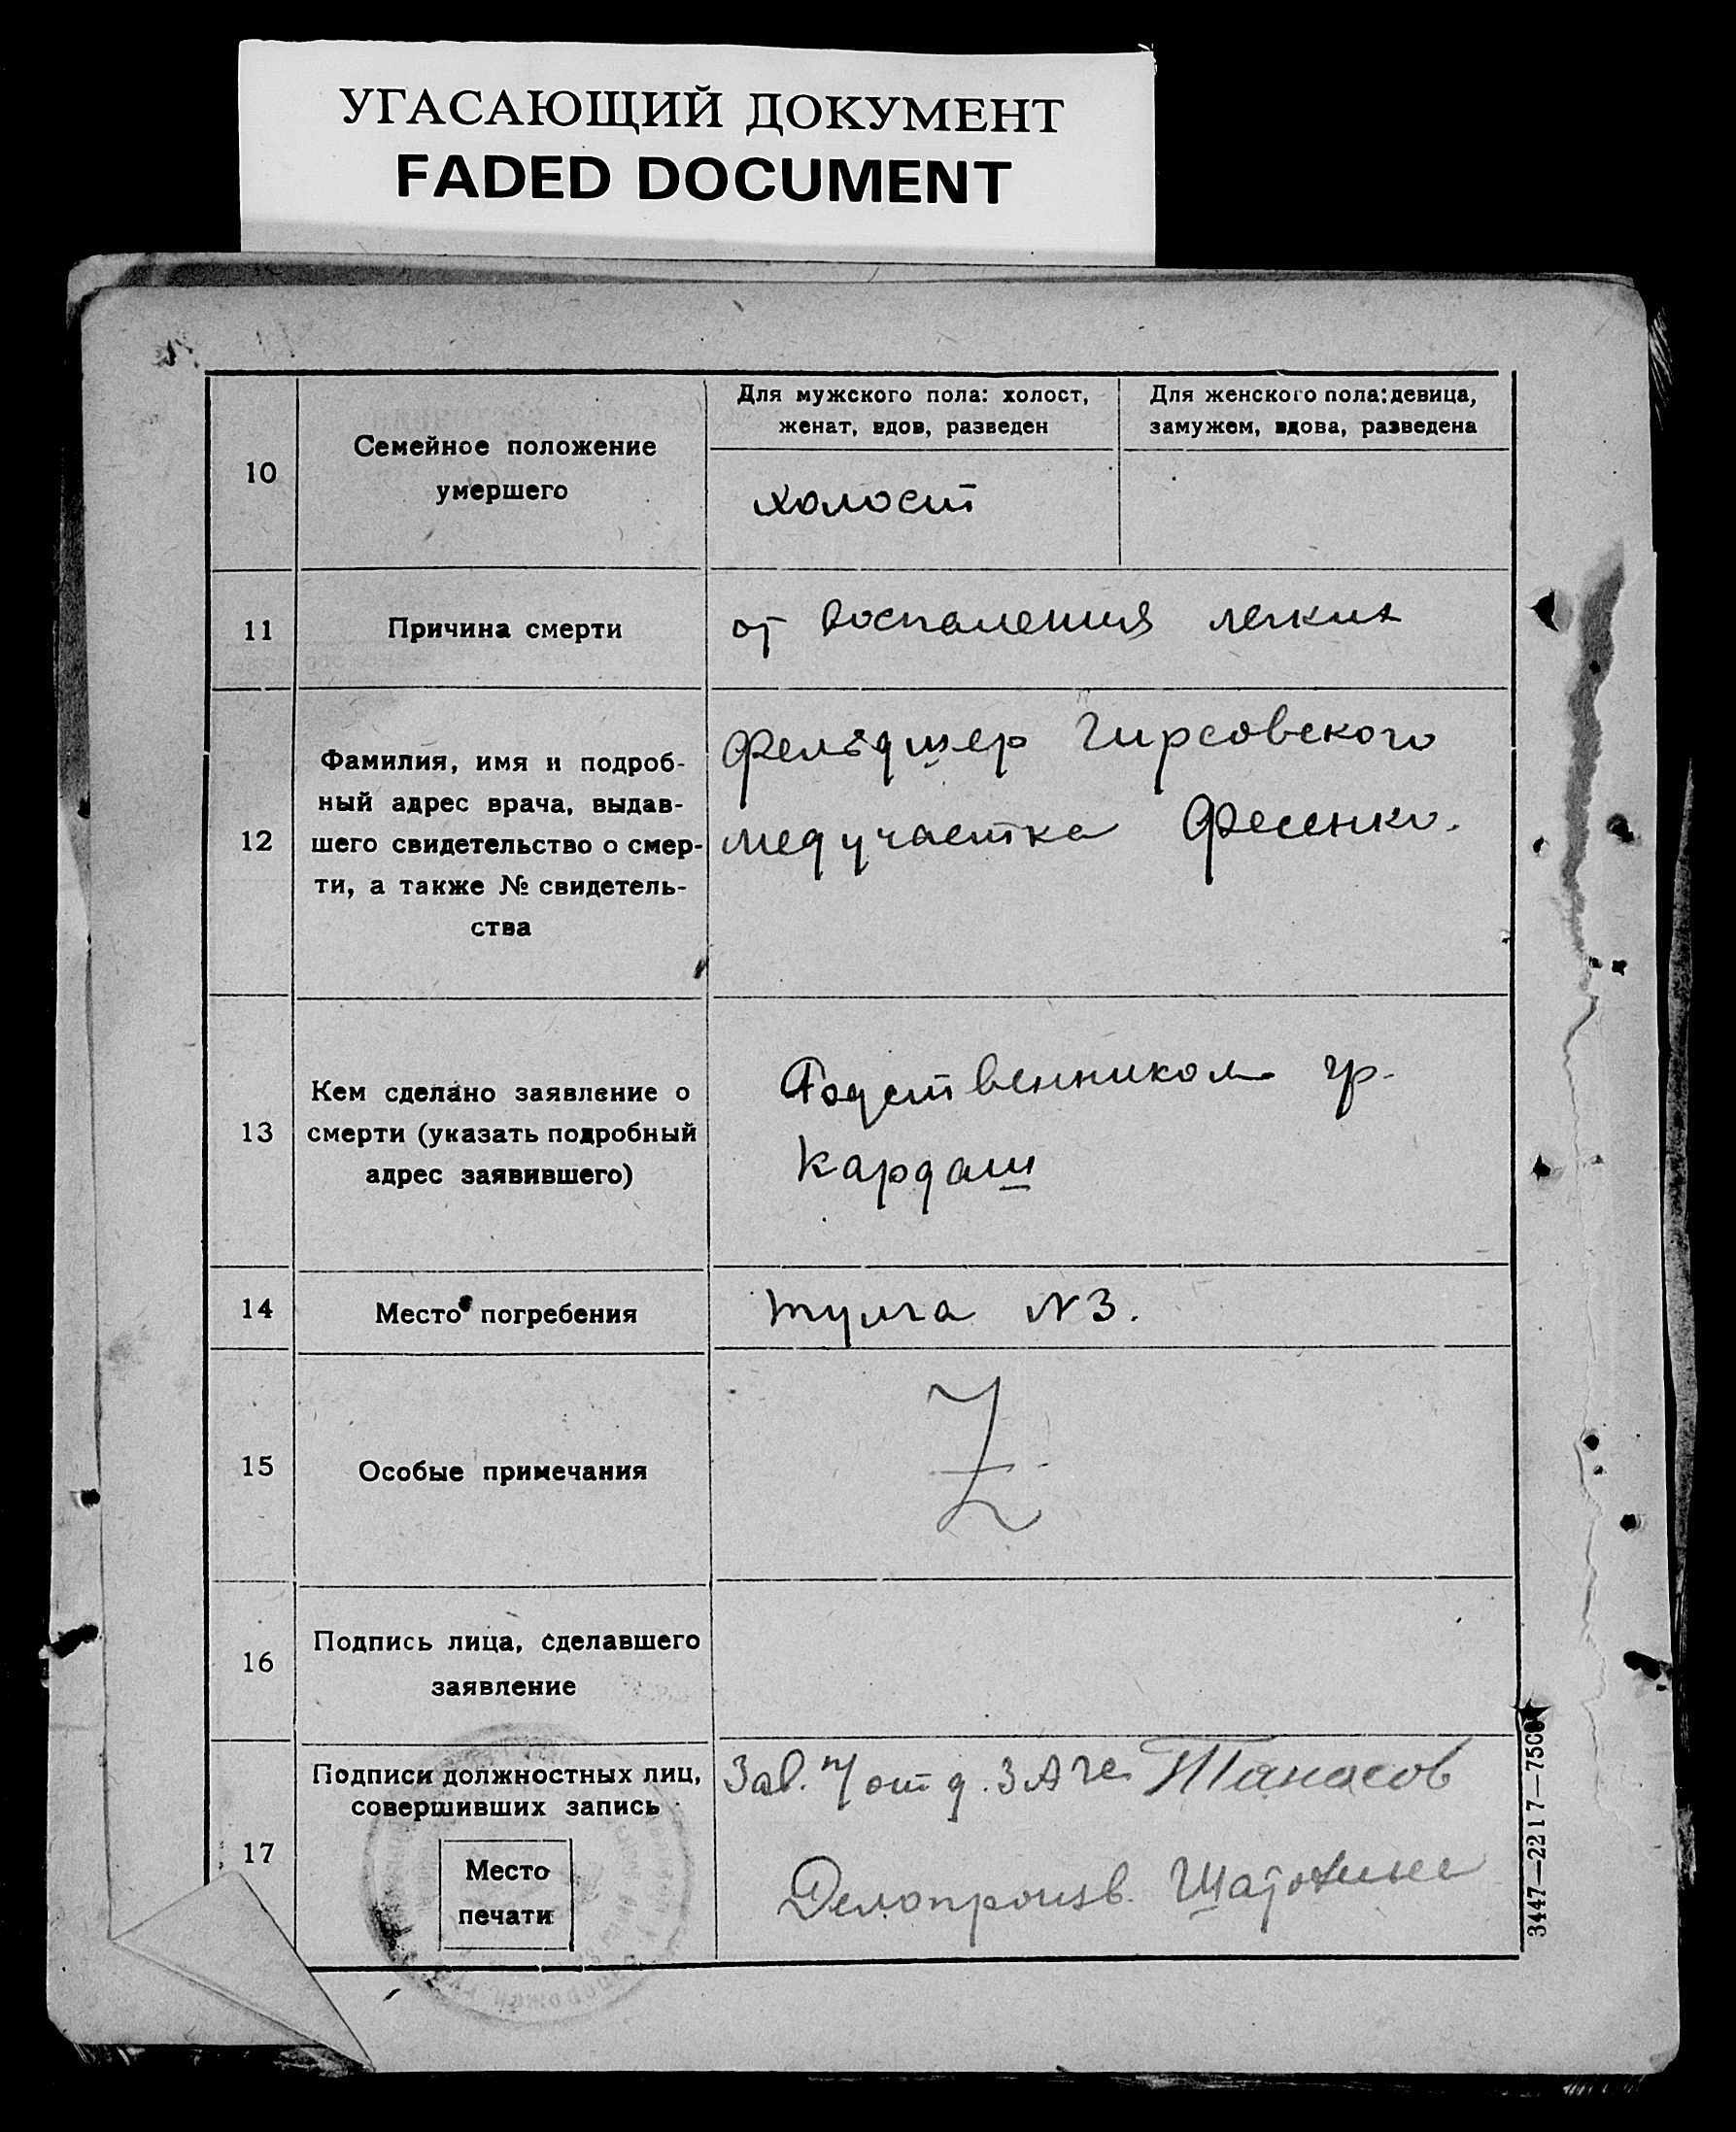 УГАСАЮЩИЙ ДОКУМЕНТ
FADED DOCUMENT
10
Семейное положение
умершего
Для мужского пола: холост,
женат, вдов, разведен
Для женского пола: девица,
замужем, вдова, разведена
холост
11
Причина смерти
от воспаления легких
12
Фамилия, имя и подроб-
ный адрес врача, выдав-
шего свидетельство о смер-
ти, а также № свидетель-
ства
Фельдшер Гирсовского
медучастка Фесенко.
13
Кем сделано заявление о
смерти (указать подробный
адрес заявившего)
Родственником гр.
Кардаш
14
Место погребения
N 3.
15
Особые примечания
Z
16
Подпись лица, сделавшего
заявление
17
Подписи должностных лиц,
совершивших запись
Место
печати
Зав. отд. ЗАГС Танасов
Делопроизв.
3447—2217—7500